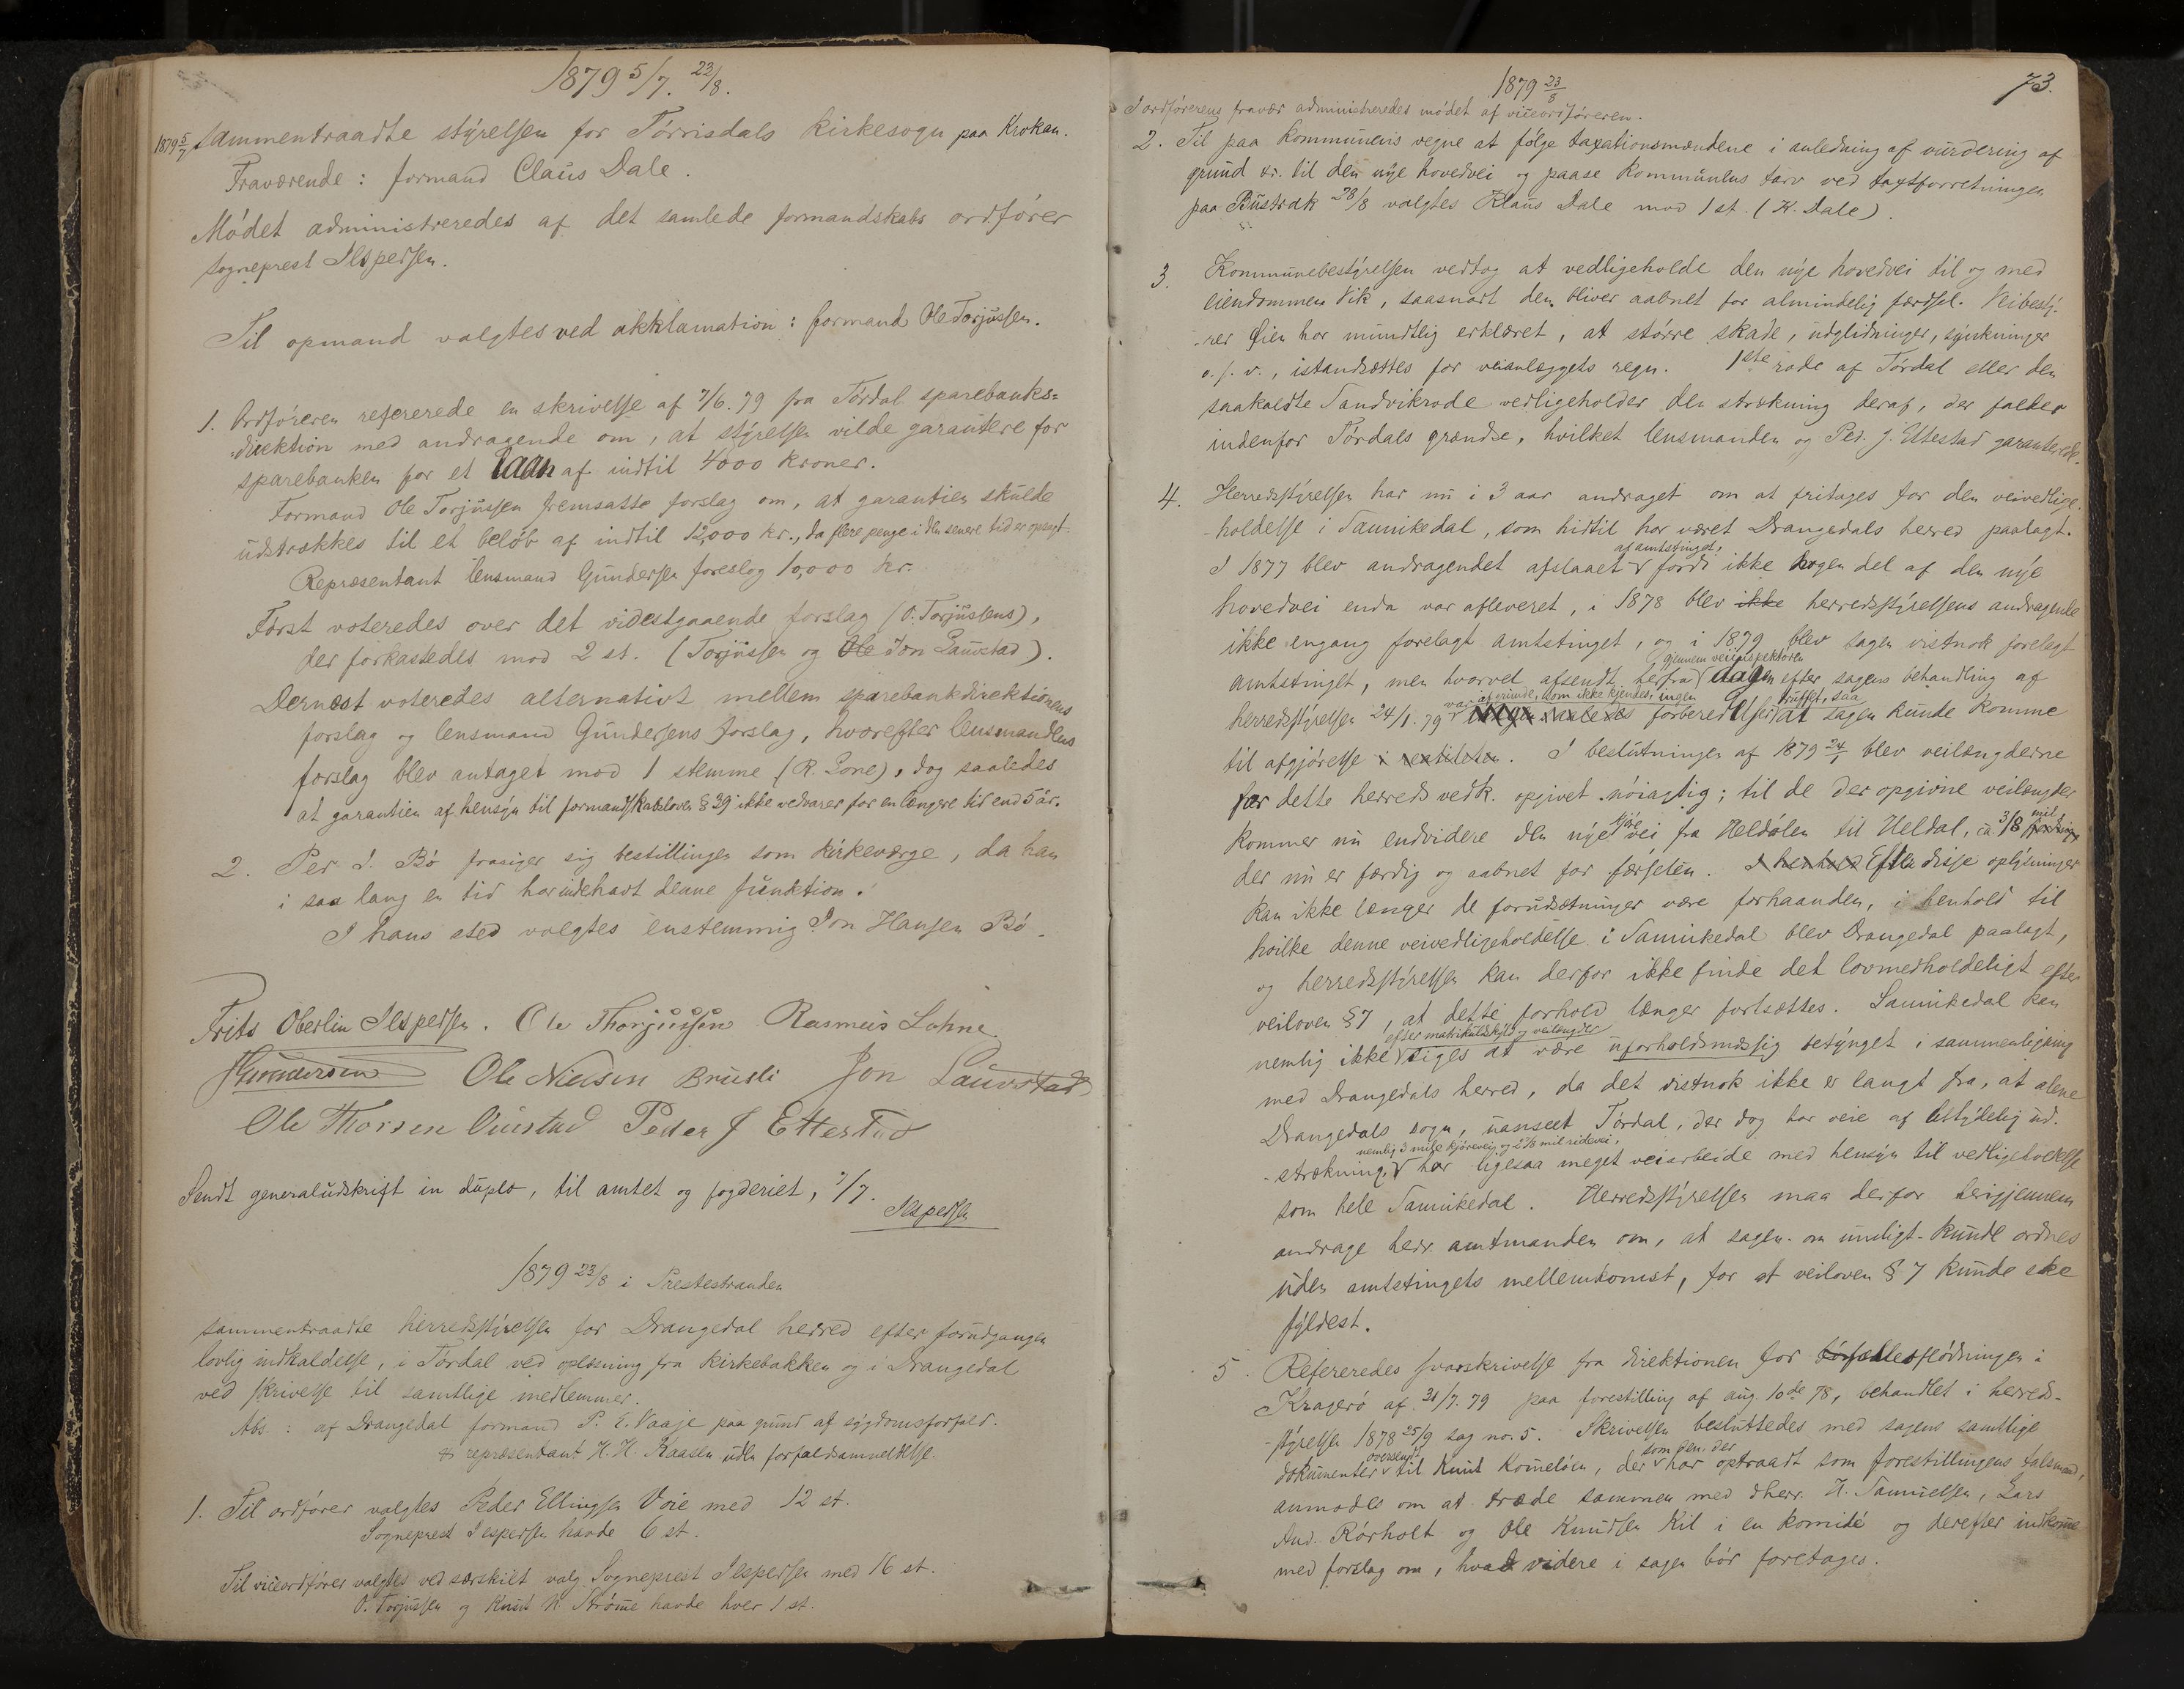 1879 5/7. 23/8.
1879 5/7 sammentraadte stÿrelsen for Tórrisdals kirkesogn paa Krokan.
Fraværende: formand Claus Dale.
Módet administreredes af det samlede formandskabs ordfórer
sogneprest Jespersen.
Til opmand valgtes ved akklamation: formand Ole Torjussen.
1. Ordfóreren refererede en skrivelse af 7/6. 79 fra Tórdal sparebanks=
direktion med andragende om, at stÿrelsen vilde garantere for
sparebanken for et laan af indtil 4000 kroner.
Formand Ole Torjussen fremsatte forslag om, at garantien skulde
udstrækkes til et belób af indtil 12,000 kr., da flere penge i den senere tid er opsagt.
Repræsentant lensmand Gundersen foreslog 10,000 kr.
Fórst voteredes over det videstgaaende forslag (O. Torjussens),
der forkastedes mod 2 st. (Torjussen og Ole Jon Lauvstad).
Dernæst voteredes alternativt mellem sparebankdirektionens
forslag og lensmand Gundersens forslag, hvorefter lensmandens
forslag blev antaget mod 1 stemme (R. Lone), dog saaledes
at garantien af hensÿn til formandskabsloven § 39 ikke vedvarer for en længere tid end 5 år.
2. Per J. Bó frasiger sig bestillingen som kirkeværge, da han
i saa lang en tid har indehavt denne funktion.
I hans sted valgtes enstemmig Jon Hansen Bó.
Frits Oberlin Jespersen. Ole Thorjussen Rasmus Lohne
Gundersen Ole Nielsen Brusli Jon Lauvstad
Ole Thorsen Vuistad Peder J Ettestad
Sendt generaludskrift in duplo, til amtet og fogderiet, 7/7.
Jespersen
1879 23/8 i Prestestranden
sammentraadte herredsstÿrelsen for Drangedal herred efter forudgangen
lovlig indkaldelse, i Tórdal ved oplæsning fra kirkebakken og i Drangedal
ved skrivelse til samtlige medlemmer.
Abs.: af Drangedal formand P. E. Vaaje paa grund af sÿgdomsforfald.
& repræsentant H. H. Kaasen uden forfaldsanmeldelse.
1. Til ordfórer valgtes Peder Ellingsen Voie med 12 st.
Sogneprest Jespersen havde 6 st.
Til viceordfórer valgtes ved særskilt valg Sogneprest Jespersen med 16 st.
O. Torjussen og Knut N. Strómme havde hver 1 st.
1879 23/8
73.
I ordfórerens fravær administreredes módet af viceordfóreren.
2. Til paa kommunens vegne at fólge taxationsmændene i anledning af vurdering af
grund &r. til den nÿe hovedvei og paase kommunens tarv ved taxtforretningen
paa Bustrak 28/8 valgtes Klaus Dale mod 1 st. (K. Dale).
3. Kommunebestÿrelsen vedtog at vedligeholde den nÿe hovedvei til og med
eiendommen Vik, saasnart den bliver aabnet for almindelig færdsel. Veibestÿ-
rer Øien har mundtlig erklæret, at stórre skade, udglidninger, sÿnkninger
o. s. v., istandsættes for veianlæggets regn. 1ste rode af Tórdal eller den
saakaldte Sandvikrode vedligeholder den strækning deraf, der falder
indenfor Tórdals grændse, hvilket lensmanden og Ped. J. Ettestad garanterede.
4. Herredsstÿrelsen har nu i 3 aar andraget om at fritages for den veivedlige-
holdelse i Sannikedal, som hidtil har været Drangedals herred paalagt.
I 1877 blev andragendet afslaaet af amtstinget, fordi ikke nogen del af den nÿe
hovedvei enda var afleveret, i 1878 blev ikke herredsstÿrelsens andragende
ikke engang forelagt amtstinget, og i 1879 blev sagen vistnok forelagt
amtstinget, men hvorvel afsendt herfra gjennem veiinspektóren dagen efter sagens behandling af
herredsstÿrelsen 24/1. 79 var af grunde, som ikke kjendes, ingen forberedelser truffet, saa at sagen kunde komme
til afgjórelse. I beslutningen af 1879 24/1 blev veilængderne
for dette herreds vedk. opgivet nóiagtig; til de der opgivne veilængder
kommer nu endvidere den nÿe kjórevei fra Heldólen til Heldal, ca. 3/8 mil
der nu er færdig og aabnet for færselen. I henhold Efter disse oplÿsninger
kan ikke længer de forudsætninger være forhaanden, i henhold til
hvilke denne veivedligeholdelse i Sannikedal blev Drangedal paalagt,
og herredsstÿrelsen kan derfor ikke finde det lovmedholdeligt efter
veiloven § 7, at dette forhold længer fortsættes. Sannikedal kan
nemlig ikke efter matrikulskyld og veilængder siges at være uforholdsmæssig betÿnget i sammenligning
med Drangedals herred, da det vistnok ikke er langt fra, at alene
Drangedals sogn, uanseet Tórdal, der dog har veie af betÿdelig ud-
strækning, nemlig 3 mile kjórevei og 2 7/8 mil ridevei, har ligesaa meget veiarbeide med hensÿn til vedligeholdelse
som hele Sannikedal. Herredsstÿrelsen maa derfor herigjennem
andrage herr amtmanden om, at sagen - om muligt - kunde ordnes
uden amtstingets mellemkomst, for at veiloven § 7 kunde ske
fÿldest.
5. Refereredes svarskrivelse fra direktionen for fællesflódningen i
Krageró af 31/7. 79 paa forestilling af aug. 10de 78, behandlet i herreds-
stÿrelsen 1878 25/9 sag no. 5. Skrivelsen besluttedes med sagens samtlige
dokumenter oversendt til Knut Komelóen, der som den, der har optraadt som forestillingens talsmand,
anmodes om at træde sammen med dherr. H. Samuelsen, Lars
And. Rórholt og Ole Knudsen Kil i en komité og derefter indkomme
med forslag om, hvad videre i sagen bór foretages.